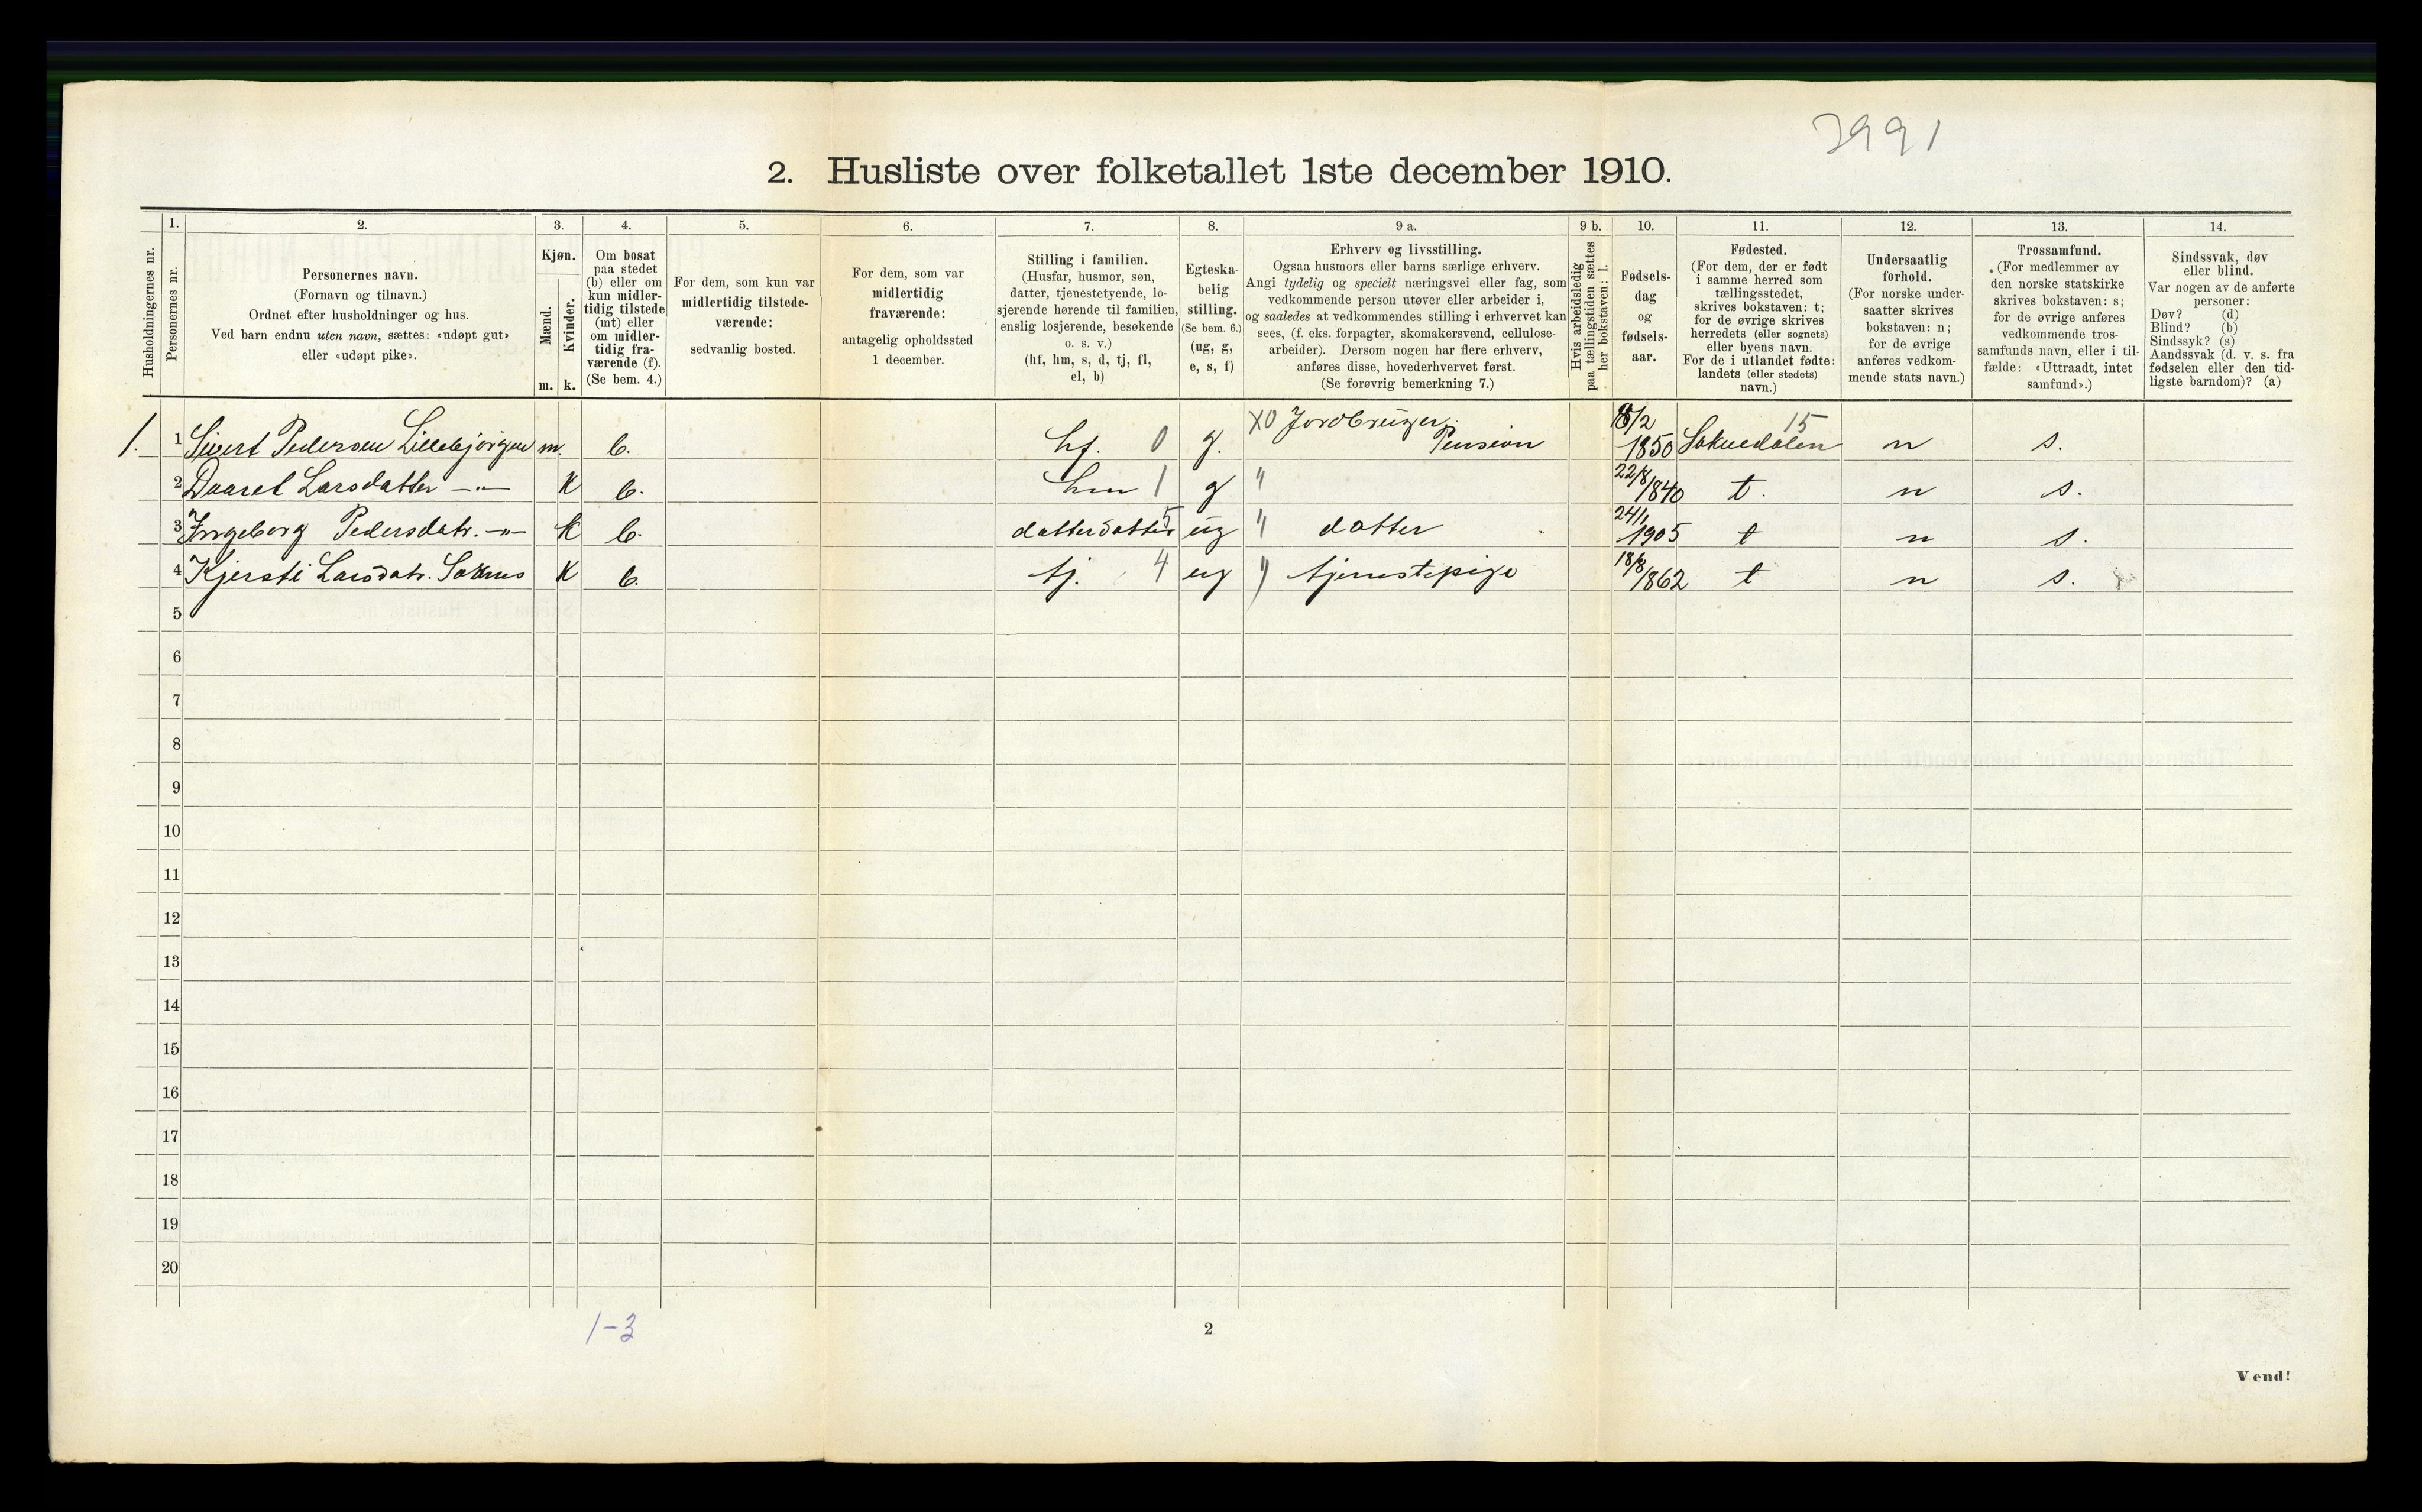 3991
2. Husliste over folketallet 1ste december 1910.
Husholdningernes nr.
1.
Personernes nr.
2.
Personernes navn.
(Fornavn og tilnavn.)
Ordnet efter husholdninger og hus.
Ved barn endnu uten navn, sættes: «udøpt gut»
eller «udøpt pike».
3.
Kjøn.
Mænd.
m.
Kvinder.
k.
4.
Om bosat
paa stedet
(b) eller om
kun midler-
tidig tilstede
(mt) eller
om midler-
tidig fra-
værende (f).
(Se bem. 4.)
5.
For dem, som kun var
midlertidig tilstede-
værende:
sedvanlig bosted.
6.
For dem, som var
midlertidig
fraværende:
antagelig opholdssted
1 december.
7.
Stilling i familien.
(Husfar, husmor, søn,
datter, tjenestetyende, lo-
sjerende hørende til familien,
enslig losjerende, besøkende
o. s. v.)
(hf, hm, s, d, tj, fl,
el, b)
8.
Egteska-
belig
stilling.
(Se bem. 6.)
(ug, g,
e, s, f)
9 a.
Erhverv og livsstilling.
Ogsaa husmors eller barns særlige erhverv.
Angi tydelig og specielt næringsvei eller fag, som
vedkommende person utøver eller arbeider i,
og saaledes at vedkommendes stilling i erhvervet kan
sees, (f. eks. forpagter, skomakersvend, cellulose-
arbeider). Dersom nogen har flere erhverv,
anføres disse, hovederhvervet først.
(Se forøvrig bemerkning 7.)
9 b.
Hvis arbeidsledig
paa tællingstiden sættes
her bokstaven: l.
10.
Fødsels-
dag
og
fødsels-
aar.
11.
Fødested.
(For dem, der er født
i samme herred som
tællingsstedet,
skrives bokstaven: t;
for de øvrige skrives
herredets (eller sognets)
eller byens navn.
For de i utlandet fødte:
landets (eller stedets)
navn.)
12.
Undersaatlig
forhold.
(For norske under-
saatter skrives
bokstaven: n;
for de øvrige
anføres vedkom-
mende stats navn.)
13.
Trossamfund.
(For medlemmer av
den norske statskirke
skrives bokstaven: s;
for de øvrige anføres
vedkommende tros-
samfunds navn, eller i til-
fælde: «Uttraadt, intet
samfund».)
14.
Sindssvak, døv
eller blind.
Var nogen av de anførte
personer:
Døv? (d)
Blind? (b)
Sindssyk? (s)
Aandssvak (d. v. s. fra
fødselen eller den tid-
ligste barndom)? (a)
1. 1 Sivert Pedersen Lillebjørgen m. b. hf. 0 g. X0 Jordbruger Pension /2 1850 Soknedalen 15 n s.
2 Daaret Larsdatter —„— K b. hm 1 g " 22/8 1840 t. n s.
3 Ingeborg Pedersdatr. —„— K b. datterdatter 5 ug " datter 24/1 1905 t n s.
4 Kjersti Larsdatr. K b. tj. 4 ug " tjenestepige 18/8 1862 t n s.
5
6
7
8
9
10
11
12
13
14
15
16
17
18
19
20
1-3
2
Vend!